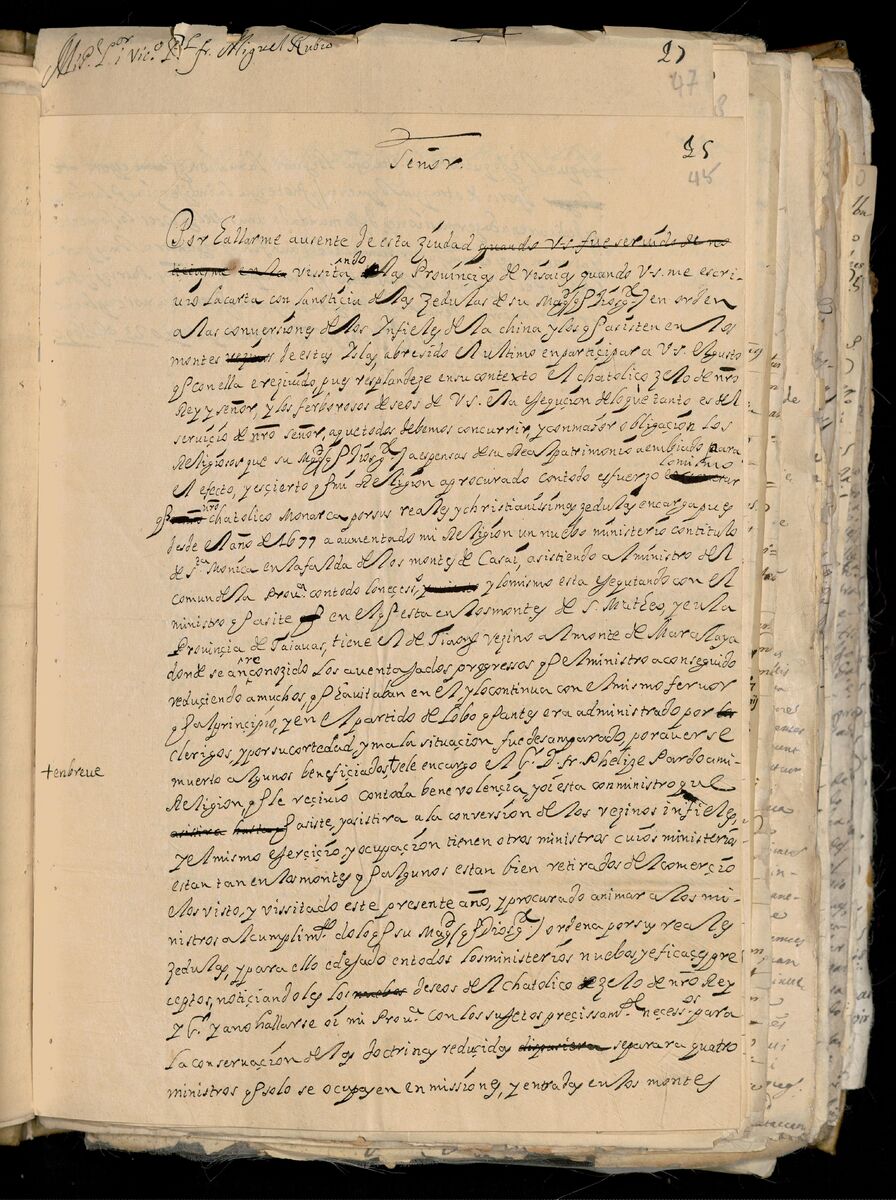 fr. Miguel Rubio
27
47
Señor.
25
45
Por hallarme ausente de esta ziudad quando V.S. fue seruido de no
en la vissitando las Prouincias de Visaias quando V.S. me escri-
uio la carta con la noticia de las Zedulas de su Magd (q Dios ge) en orden
a las conuersiones de los Infieles de la china y los q asisten en los
montes de estas Islas, a bre sido el ultimo en participar a V.S. el gusto
q con ella e reziuido, pues resplandeze en su contexto el chatolico zelo de nro
Rey y señor, y los ferborosos deseos de V.S. en la egecucion de lo que tanto es del
seruicio de nro señor, a que todos debemos concurrir, y con maior obligacion los
Religiosos que su Magd (q Dios ge) a espensas de su Real patrimonio a embiado para
el efecto, y es cierto q mi Religion a procurado con todo esfuerzo lo mismo
q nro chatolico Monarca por sus reales y christianissimas zedulas encarga pues
desde el año de 1677 a aumentado mi Religion un nuebo ministerio con titulo
de Sta Monica en la falda de los montes de Casai, asistiendo al ministro del
comun de la Proua con todo lo neceso, y lo mismo esta egecutando con el
ministro q asite en el q esta en los montes de S. Matheo, y en la
Prouincia de Taiauas, tiene el de Tiaong vezino al monte de Maralaya
donde se an reconozido los auentajados progressos q el ministro a conseguido
reduciendo a muchos, q hauitaban en el, y lo continua con el mismo feruor
q al principio, y en el partido de Lobo q antes era administrado por
clerigos, y por su cortedad, y mala situacion fue desamparado, por auerse
muerto algunos beneficiados + se le encargo el Sr. D. fr. Phelipe Pardo a mi
+ en breue
Religion q le reciuio con toda beneuolencia, y oi esta con ministro que
asistira hasta q asiste, y asistira a la conuersion de los vezinos infieles,
y el mismo exercicio, y ocupacion tienen otros ministros cuios ministerios
estan tan en los montes q algunos estan bien retirados del comercio
e los visto, y vissitado este presente año, y procurado animar a los mi-
nistros al cumplimto de lo q su Magd (q Dios ge) ordena por sus reales
zedulas, y para ello e dejado en todos los ministerios nuebos y eficaces pre
ceptos, noticiandoles los nuebos deseos del chatolico zelo de nro Rey
y Sr. y a no hallarse oi mi Proua con los sujetos precissamte necessos para
la conseruacion de las doctrinas reducidas dispusiera separara quatro
ministros q solo se ocupasen en missiones, y entradas en los montes